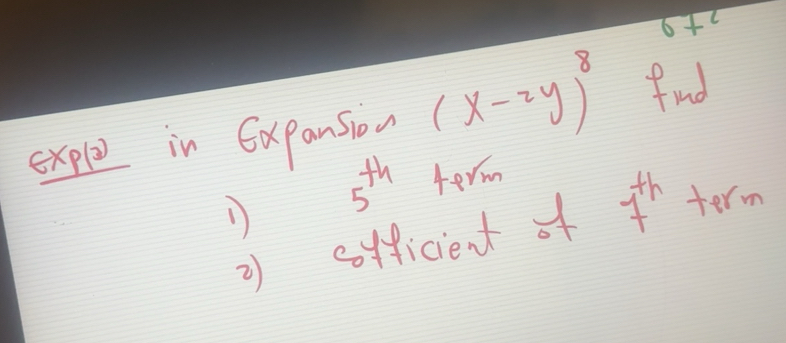 Exp(2) in Expansion (x-2y)^8 find
1) 5^th term
2) cofficient of 7^th term